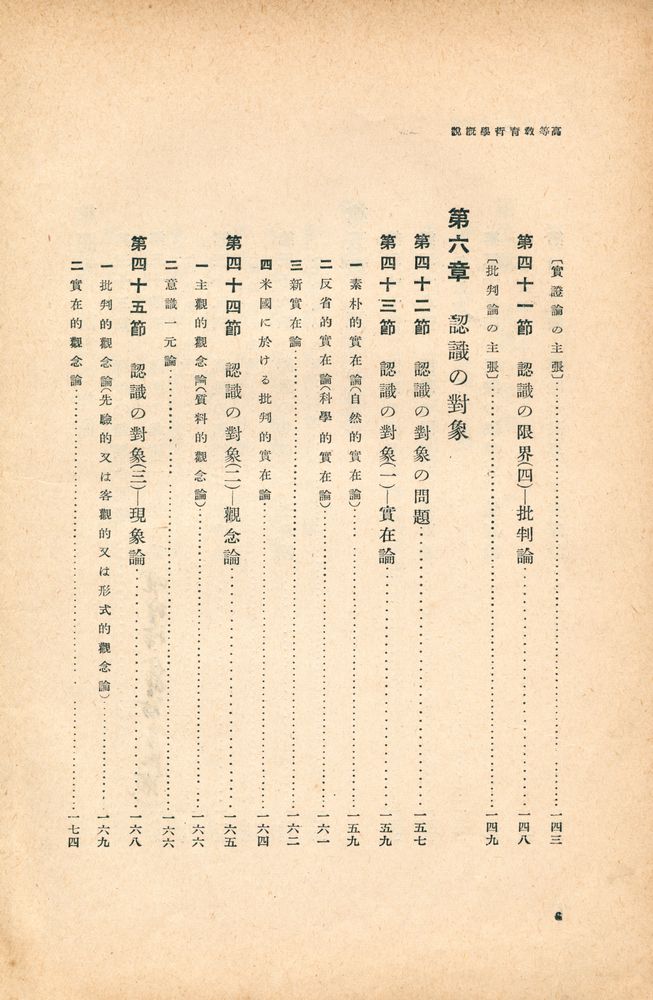 高等教育哲學概説
〔實證論の主張〕……一四三
第四十一節 認識の限界(四)—批判論……一四八
〔批判論の主張〕……一四九
第六章 認識の對象
第四十二節 認識の對象の問題……一五七
第四十三節 認識の對象(一)—實在論……一五九
一 素朴的實在論(自然的實在論)……一五九
二 反省的實在論(科學的實在論)……一六一
三 新實在論……一六二
四 米國に於ける批判的實在論……一六四
第四十四節 認識の對象(二)—觀念論……一六五
一 主觀的觀念論(質料的觀念論)……一六六
二 意識一元論……一六六
第四十五節 認識の對象(三)—現象論……一六八
一 批判的觀念論(先驗的又は客觀的又は形式的觀念論)……一六九
二 實在的觀念論……一七四
6